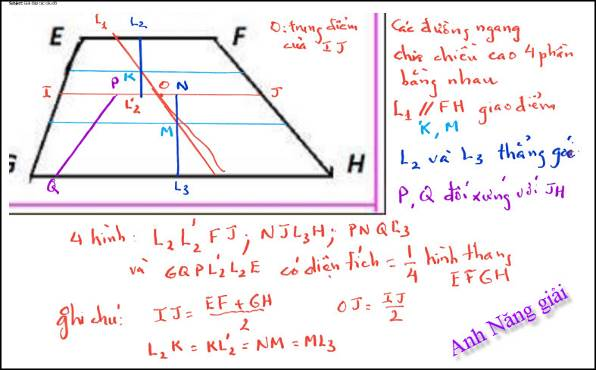 L₁ L₂
E F
O: trung điểm
của IJ
K
I P L'₂ O N J
M
G H
Q L₃
Các đường ngang
chia chiều cao 4 phần
bằng nhau
L₁ // FH giao điểm
K, M
L₂ và L₃ thẳng góc
P, Q đối xứng với JH
4 hình: L₂L'₂FJ; NJL₃H; PNQL₃
và GQPL'₂L₂E có diện tích = 1/4 hình thang
EFGH
ghi chú: IJ = EF + GH / 2 OJ = IJ / 2
L₂K = KL'₂ = NM = ML₃
Anh Năng giải